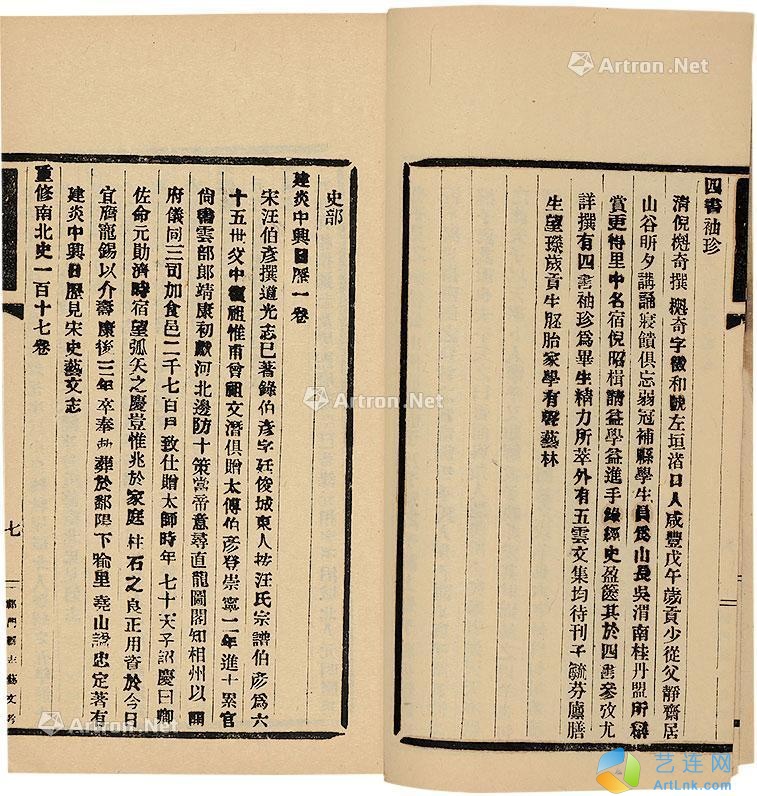 四書袖珍
清倪樾奇撰　樾奇字徵和號左垣渚口人咸豐戊午歲貢少從父靜齋居
山谷昕夕講誦寢饋俱忘弱冠補縣學生員爲山長吳渭南桂丹盟所稱
賞更得里中名宿倪昭楫請益學益進手錄經史盈篋其於四書參攷尤
詳撰有四書袖珍爲畢生精力所萃外有五雲文集均待刊子毓芬廩膳
生望璨歲貢生胚胎家學有聲藝林
史部
建炎中興日歷一卷
宋汪伯彥撰道光志已著錄伯彥字廷俊城東人按汪氏宗譜伯彥爲六
十五世父中孚祖惟甫曾祖文潛俱贈太傅伯彥登崇寧二年進士累官
尙書虞部郎靖康初獻河北邊防十策當帝意尋直龍圖閣知相州以開
府儀同三司加食邑二千七百戶致仕贈太師時年七十天子詔慶曰卿
佐命元勛濟時宿望弧矢之慶豈惟兆於家庭柱石之良正用資於今日
宜膺寵錫以介壽康後三年卒奉勅葬於鄱陽下楡里堯山諡忠定著有
建炎中興日歷見宋史藝文志
重修南北史一百十七卷
七
祁門縣志藝文考
Artron.Net
Artron.Net
Artron.Net
Artron.Net
艺连网
ArtLnk.com